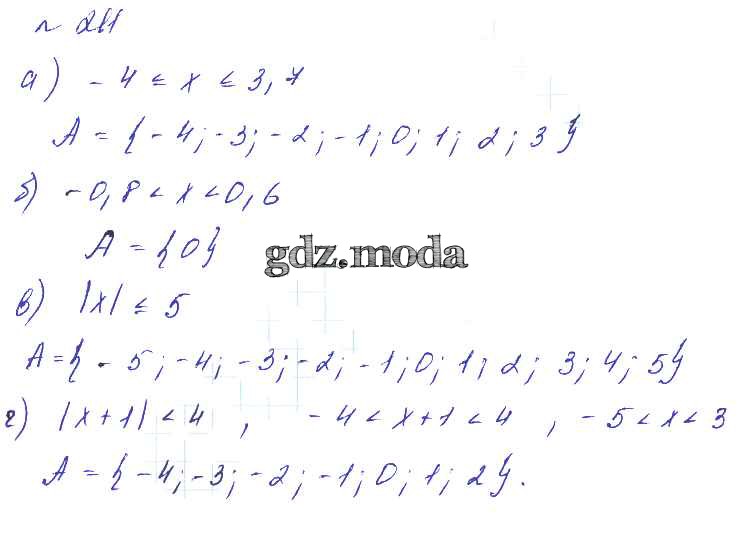 № 211
а) -4 ≤ x ≤ 3,7
A = {-4; -3; -2; -1; 0; 1; 2; 3}
б) -0,8 < x < 0,6
A = {0}
gdz.moda
в) |x| ≤ 5
A = {-5; -4; -3; -2; -1; 0; 1; 2; 3; 4; 5}
г) |x+1| < 4, -4 < x+1 < 4, -5 < x < 3
A = {-4; -3; -2; -1; 0; 1; 2}.